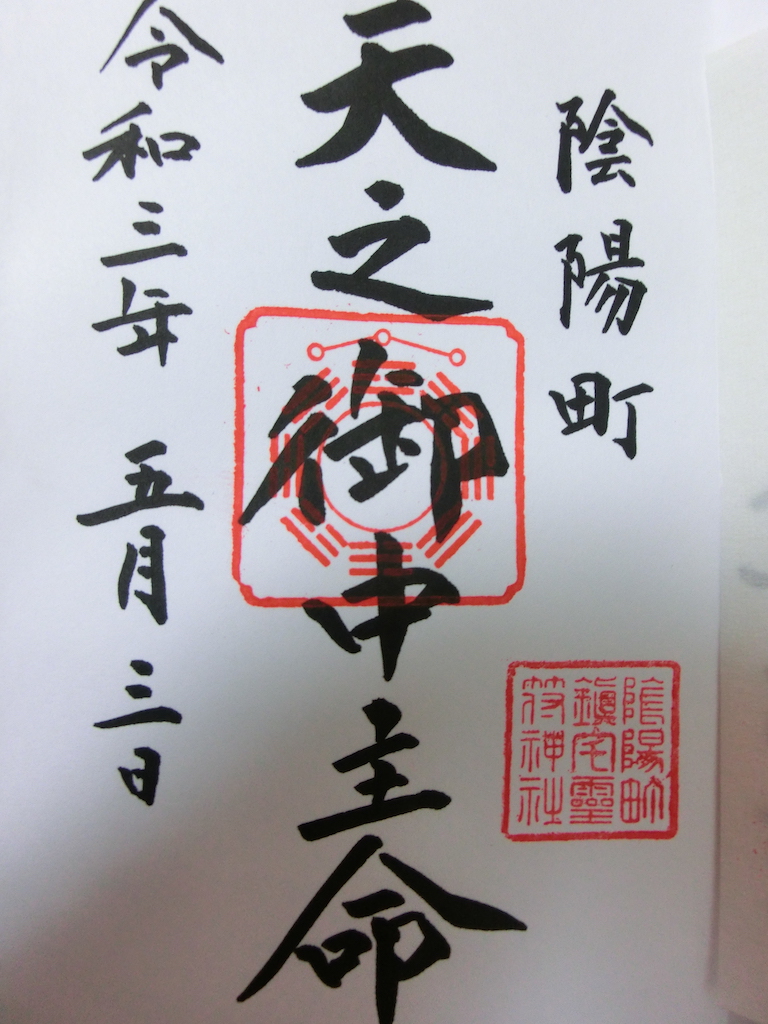 陰陽町
天之御中主命
令和三年 五月三日
陰陽町
鎮宅霊
符神社